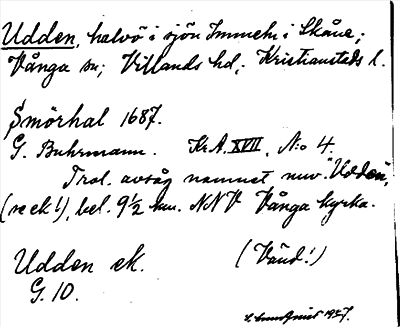 Udden, halvö i sjön Immeln i Skåne;
Vånga sn; Villands hd; Kristianstads l.
Smörhal 1687.
G. Buhrmann. Kr.A. XVII, N:o 4.
Trol. avsåg namnet nuv. "Udden",
(se ek!), bel. 9½ km. NNV Vånga kyrka.
Udden ek. (Vänd!)
G. 10.
1927.